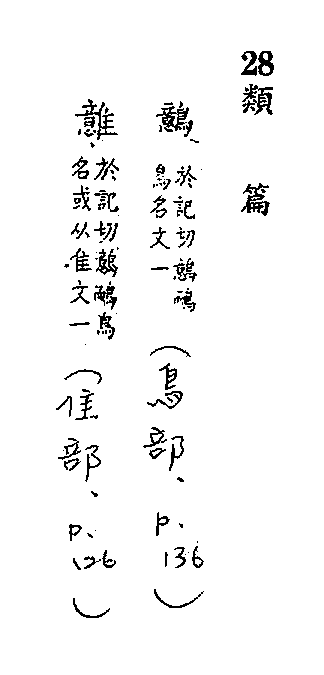 28
類篇
鷾、
於記切鷾鴯
鳥名文一
（鳥部、p.136）
、
於記切鷾鴯鳥
名或从隹文一
（隹部、p.126）